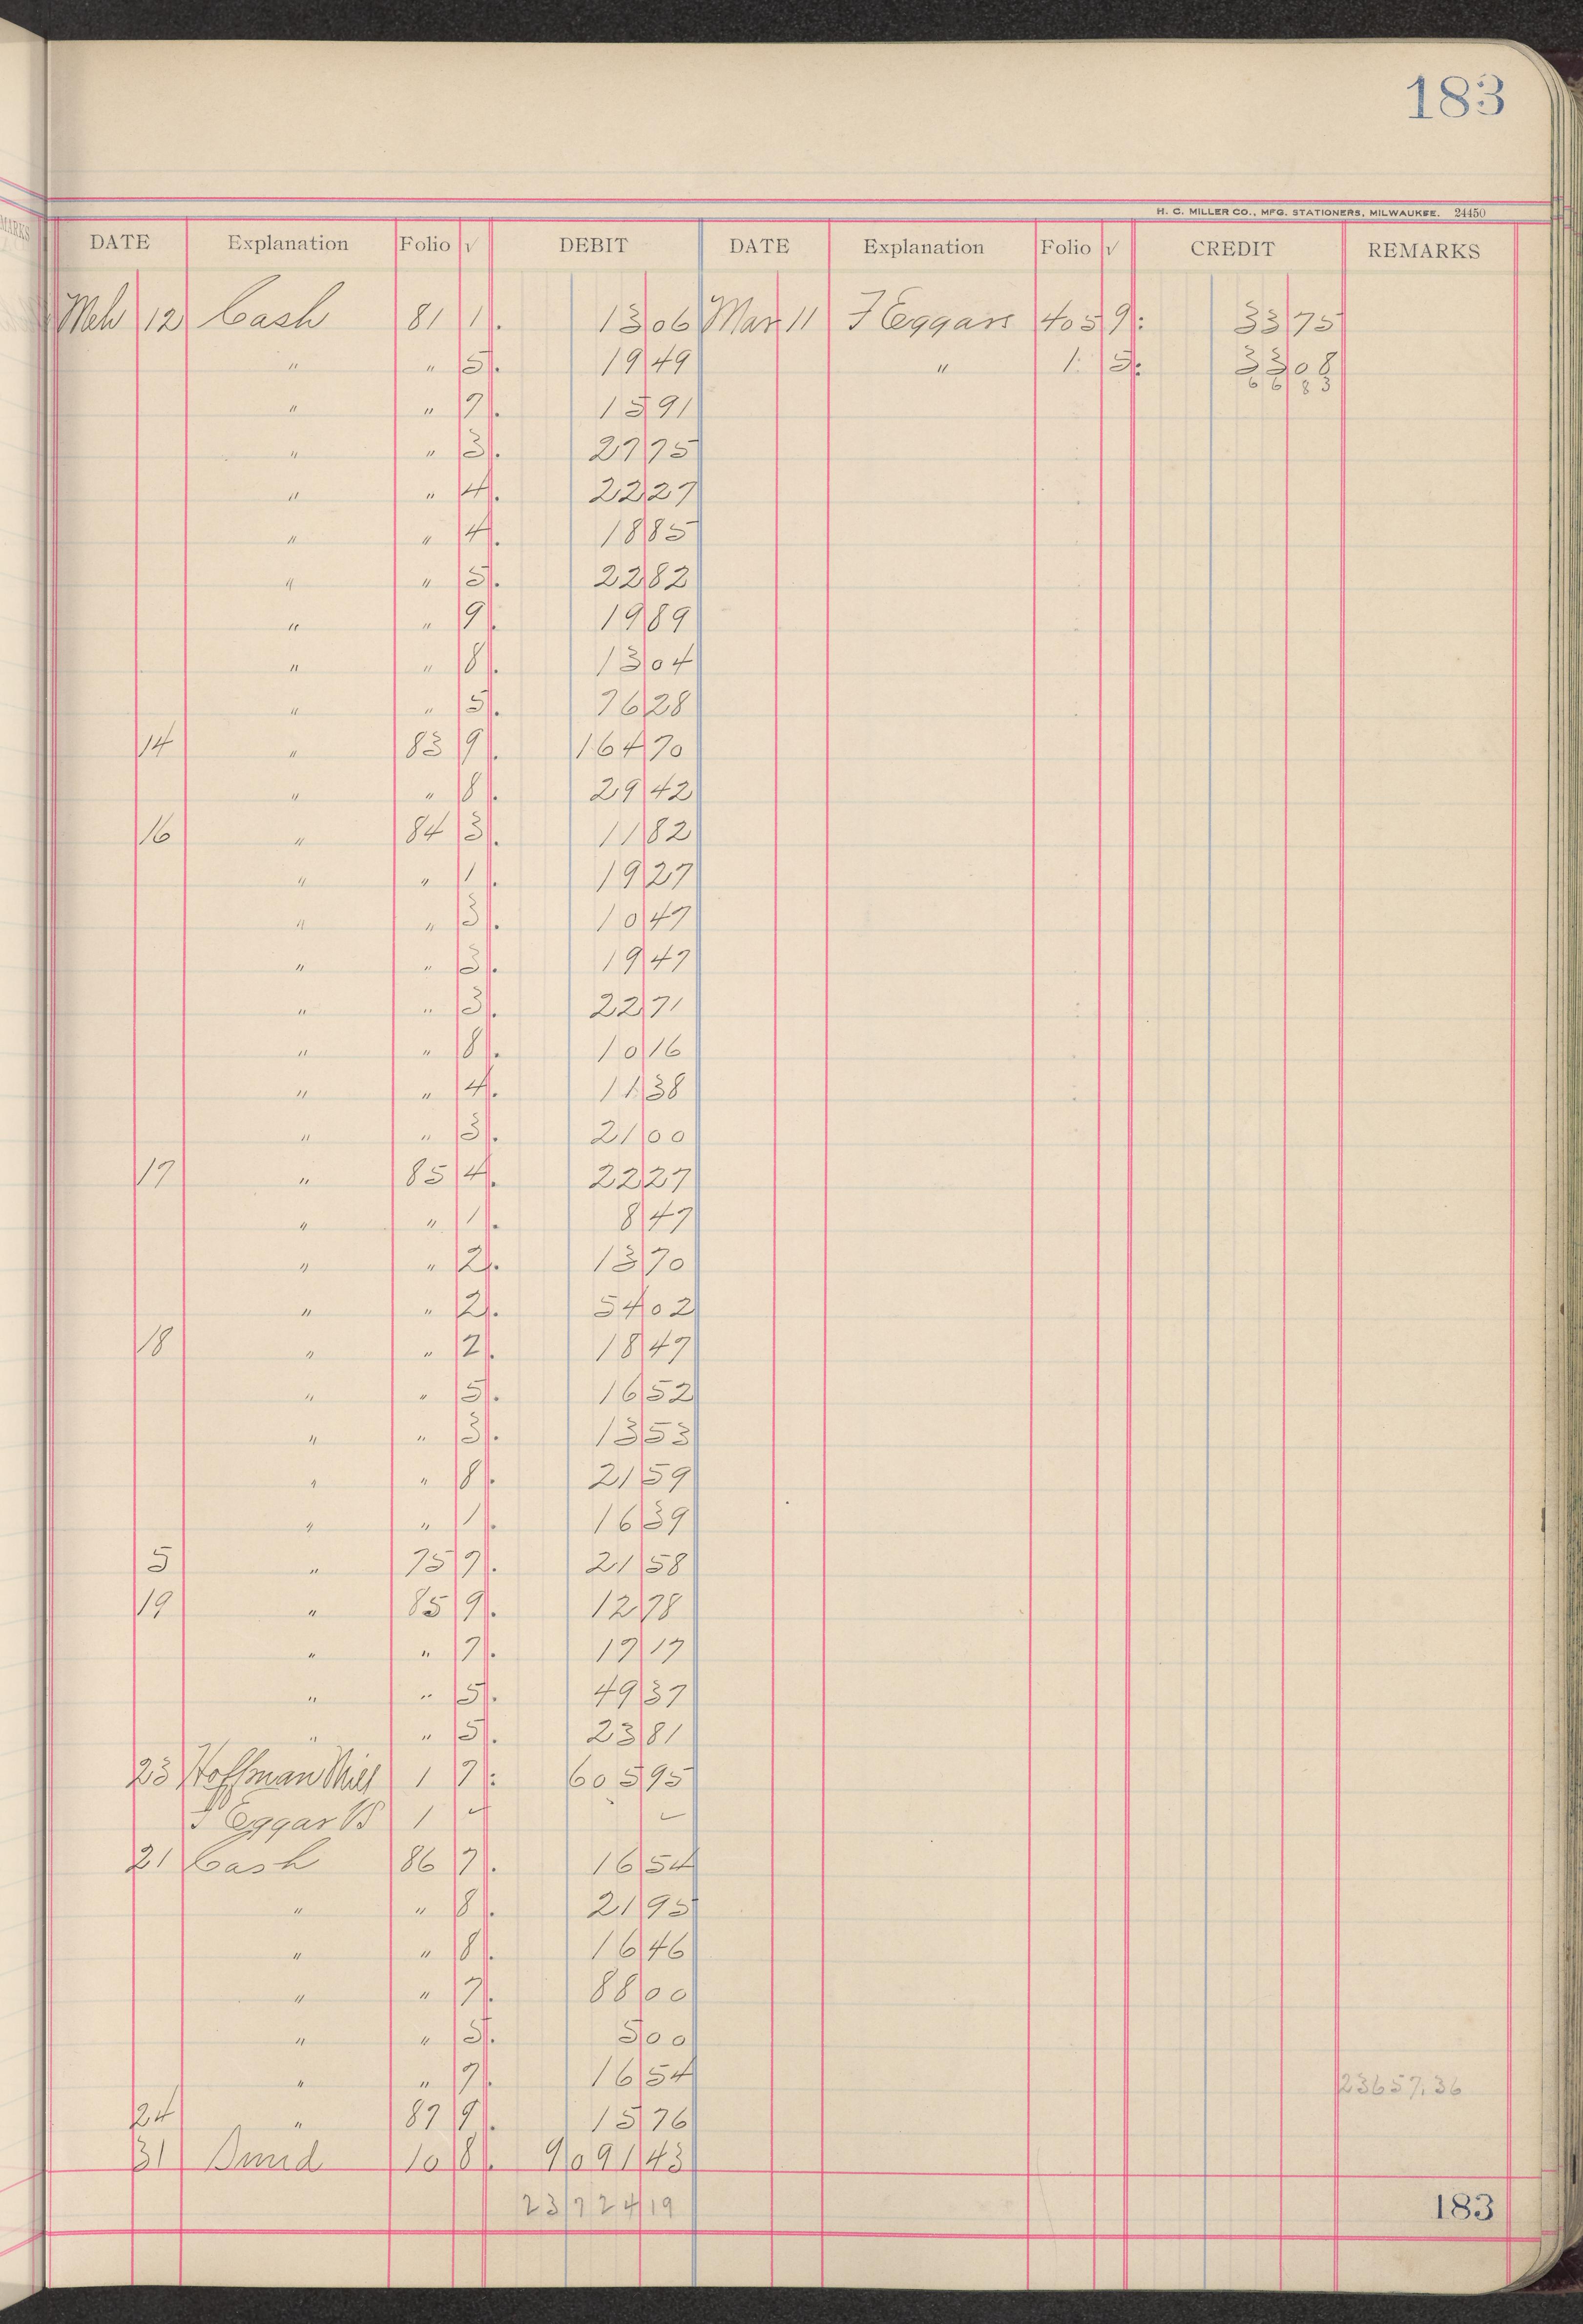 183
H. C. MILLER CO., MFG. STATIONERS, MILWAUKEE. 24450
DATE Explanation Folio √ DEBIT DATE Explanation Folio √ CREDIT REMARKS
Mch 12 Cash 81 1. 13 06 Mar 11 F Eggars 405 9. 33 75
" " 5. 19 49 " 1. 5. 33 08
66 83
" " 7. 15 91
" " 3. 27 75
" " 4. 22 27
" " 4. 18 85
" " 5. 22 82
" " 9. 19 89
" " 8. 13 04
" " 5. 76 28
14 " 83 9. 164 70
" " 8. 29 42
16 " 84 3. 11 82
" " 1. 19 27
" " 3. 10 47
" " 3. 19 47
" " 3. 22 71
" " 8. 10 16
" " 4. 11 38
" " 3. 21 00
17 " 85 4. 22 27
" " 1. 8 47
" " 2. 13 70
" " 2. 54 02
18 " " 2. 18 47
" " 5. 16 52
" " 3. 13 53
" " 8. 21 59
" " 1. 16 39
5 " 75 7. 21 58
19 " 85 9. 12 78
" " 7. 17 17
" " 5. 49 37
" " 5. 23 81
23 Hoffman Mill 1 7. 605 95
Eggar B 1 ✓ ✓
21 Cash 86 7. 16 54
" " 8. 21 95
" " 8. 16 46
" " 7. 88 00
" " 5. 5 00
" " 7. 16 54
23657.36
24 " 87 9. 15 76
31 10 8. 9091 43
23724 19
183